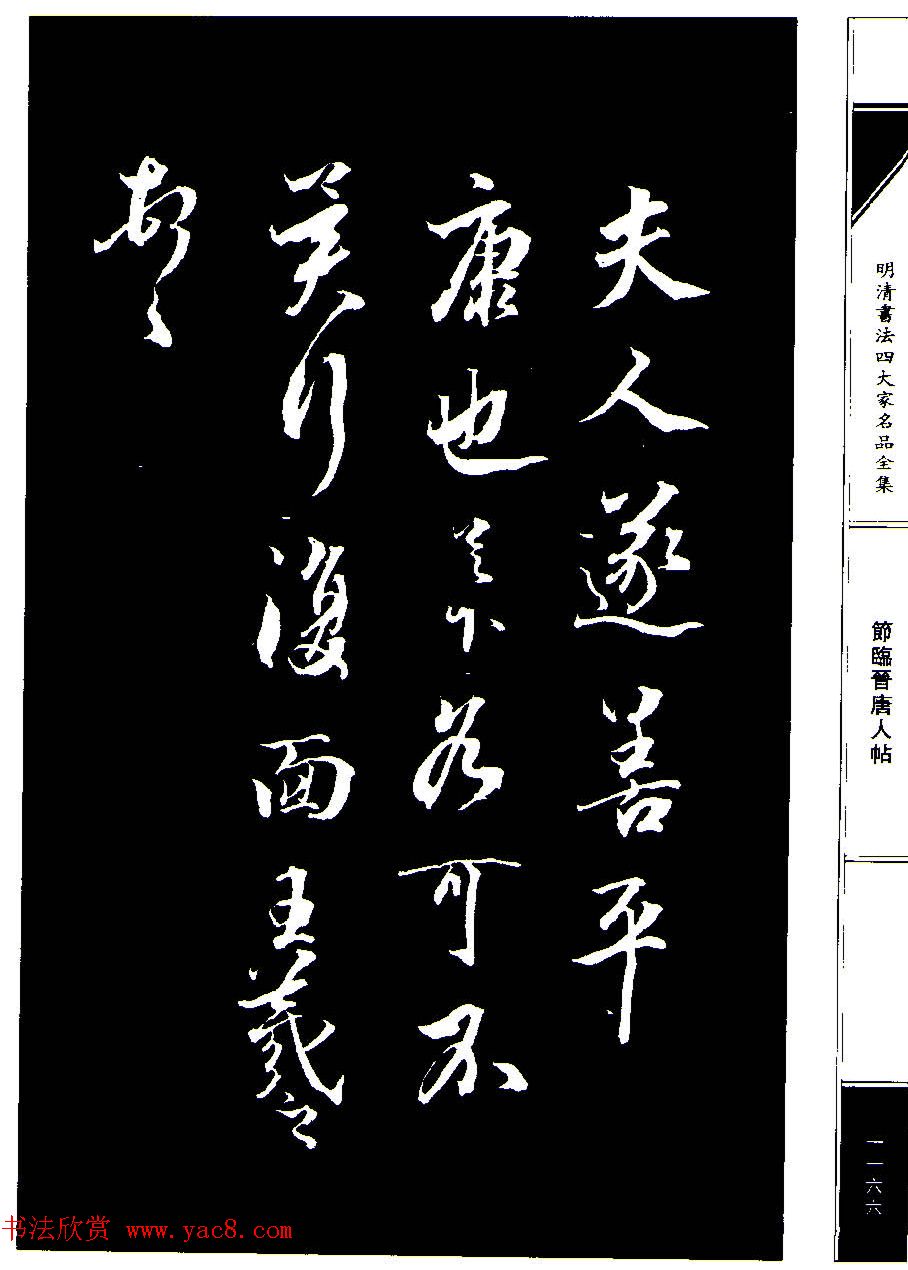 夫人遂善平
康也足下各可不
冀行復面王羲之
明清書法四大家名品全集
節臨晉唐人帖
一一六六
书法欣赏 www.yac8.com